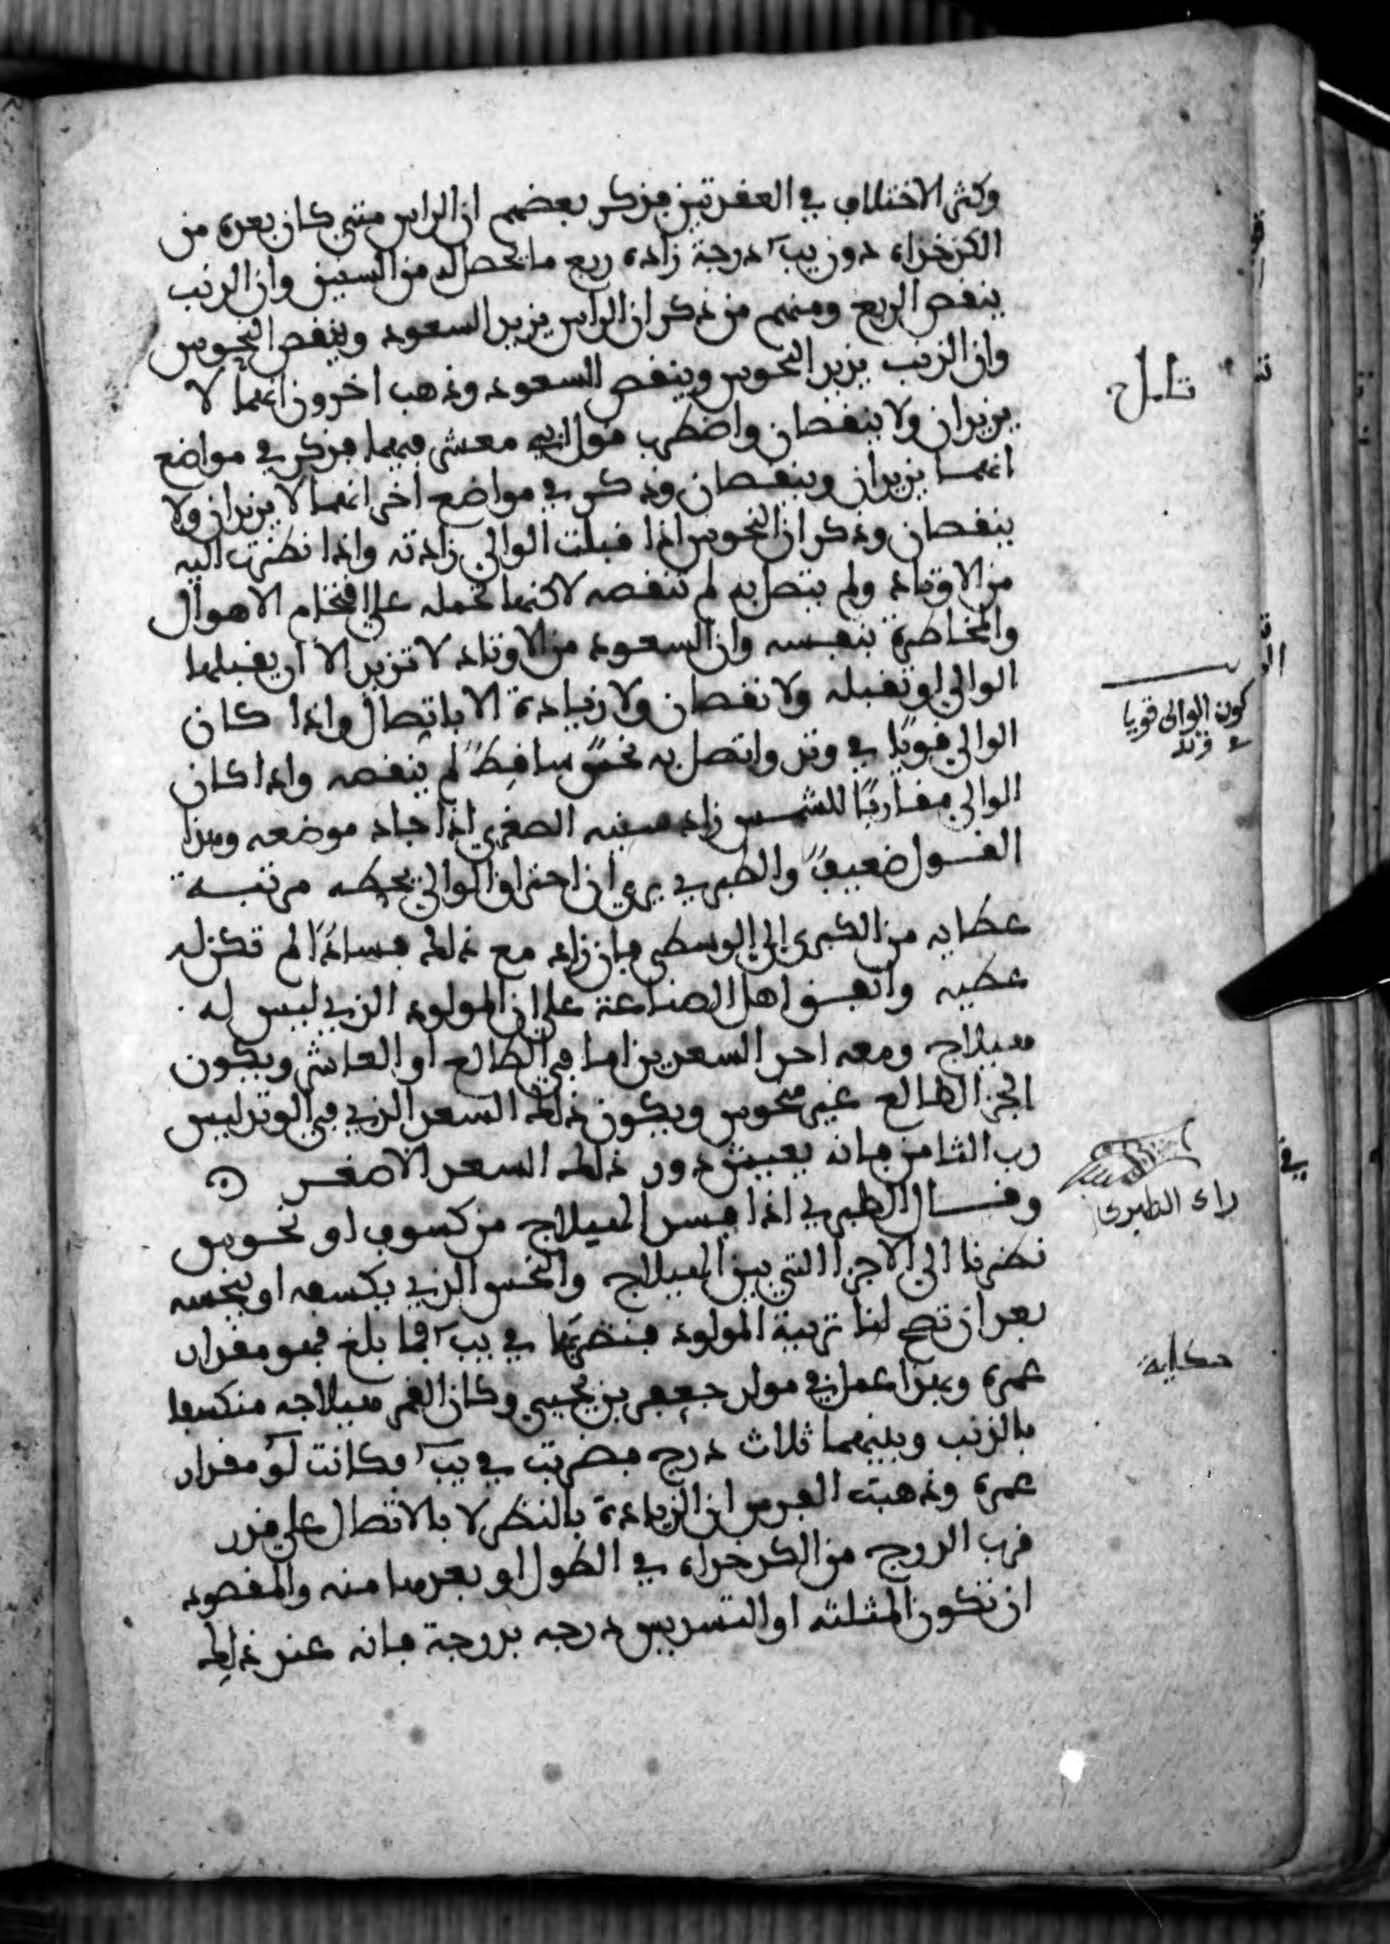 وكثر الاختلاف في العقدتين فذكر بعضهم ان الراس متى كان بعده من
الكذخداه دون يب درجة زاده ربع ما يحصل له من السنين وان الذنب
ينقص الربع ومنهم من ذكر ان الراس يزيد السعود وينقص النحوس
وان الذنب يزيد النحوس وينقص السعود وذهب اخرون انهما لا
يزيدان ولا ينقصان واضطرب قول ابي معشر فيهما فذكر في مواضع
انهما يزيدان وينقصان وذكر في مواضع اخر انهما لا يزيدان ولا
ينقصان وذكر ان النحوس اذا قبلت الوالي زادته واذا نظرت اليه
من الاوتاد ولم يتصل به لم تنقصه لاكنها تحمله على اقتحام الاهوال
والمخاطرة بنفسه وان السعود من الاوتاد لا تزيد الا ان يقبلها
الوالي او تقبله ولا نقصان ولا زيادة الا باتصال واذا كان
الوالي قويًا في وتد واتصل به نحسٌ ساقطٌ لم ينقصه واذا كان
الوالي مقاربًا للشمس زاد سنيه الصغرى اذا جاد موضعه وهذا
القول ضعيفٌ والطبري يرى ان احتراق الوالي يحطه مرتبة
عطايه من الكبرى الى الوسطى فان زاد مع ذلك فسادًا لم تكن له
عطيه واتفق اهل الصناعة على ان المولود الذي ليس له
هيلاج ومعه احد السعدين اما في الطالع او العاشر ويكون
الجز الطالع غير منحوس ويكون ذلك السعد الذي في الوتد ليس
رب الثامن فانه يعيش دور ذلك السعد الاصغر
وقال الطبري اذا فسد الهيلاج من كسوف او نحوس
نظرنا الى الاجزا التي بين الهيلاج والنحس الذي يكسفه او ينحسه
بعد ان تصح لنا تربية المولود فنضربها في يب فما بلغ فهو مقدار
عمره وبهذا عمل في مولد جعفر بن يحيى وكان القمر هيلاجه منكسفا
بالذنب وبينهما ثلاث درج فضربت في يب فكانت لو مقدار
عمره وذهبت الفرس ان الزيادة بالنظر لا بالاتصال على قدر
قرب الدرج من الكدخداه في الطول او بعدها منه والمقصود
ان تكون المثلثه او التسديس درجه بدرجة فانه عند ذلك
تامل
كون الوالي قويا
في وتد
راى الطبرى
حكاية